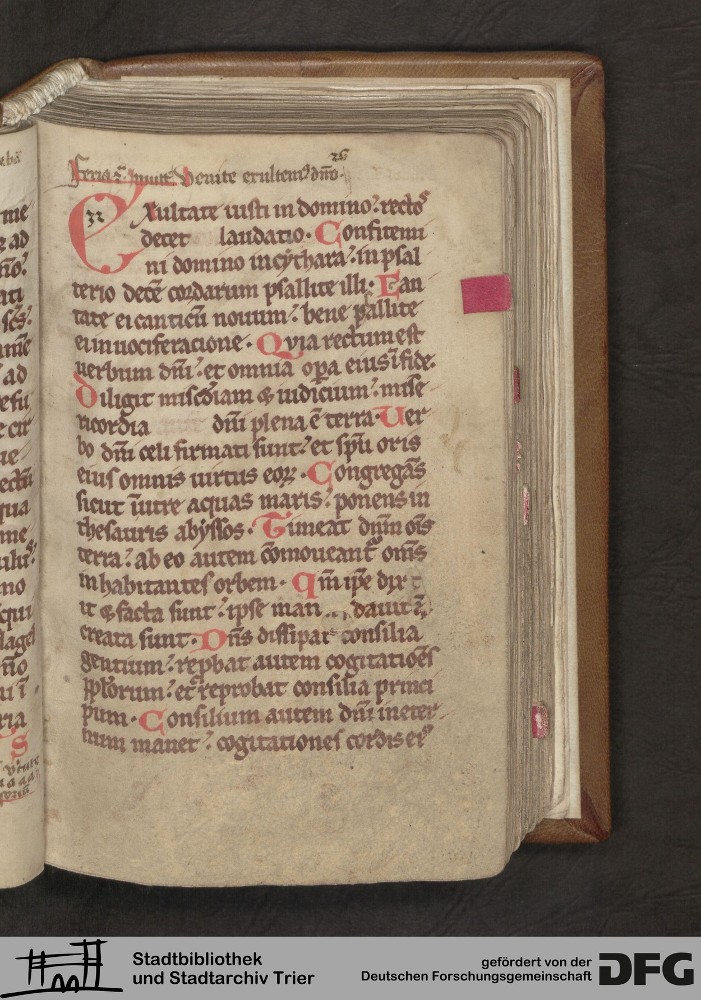 26
feria 2ᵃ Inuitᵗ Venite exultemꝰ dño.
32
Exultate iusti in domino: rectoˢ
decet laudatio. Confitemi
ni domino in cythara: in psal
terio decē cordarum psallite illi. Can
tate ei canticū nouum: bene psallite
ei in uociferacione. Quia rectum est
uerbum dñi: et omnia opa eius ī fide.
Diligit miscdiam & iudicium: mise
ricordia dñi plena ē terra. Uer
bo dñi celi firmati sunt: et spū oris
eius omnis uirtus eoꝝ. Congregās
sicut ī utre aquas maris: ponens in
thesauris abyssos. Timeat dñm oīs
terra: ab eo autem cōmoueantᷣ om̄s
inhabitantes orbem. qm̄ ipē dix
it & facta sunt: ipse man dauit &
creata sunt. Dñs dissipat consilia
gentium: repbat autem cogitationēs
pplorum: et reprobat consilia princi
pum. Consilium autem dñi in eter
num manet: cogitationes cordis eiꝰ
me
ad
ad
no
ria
S
Stadtbibliothek
und Stadtarchiv Trier
gefördert von der
Deutschen Forschungsgemeinschaft
DFG